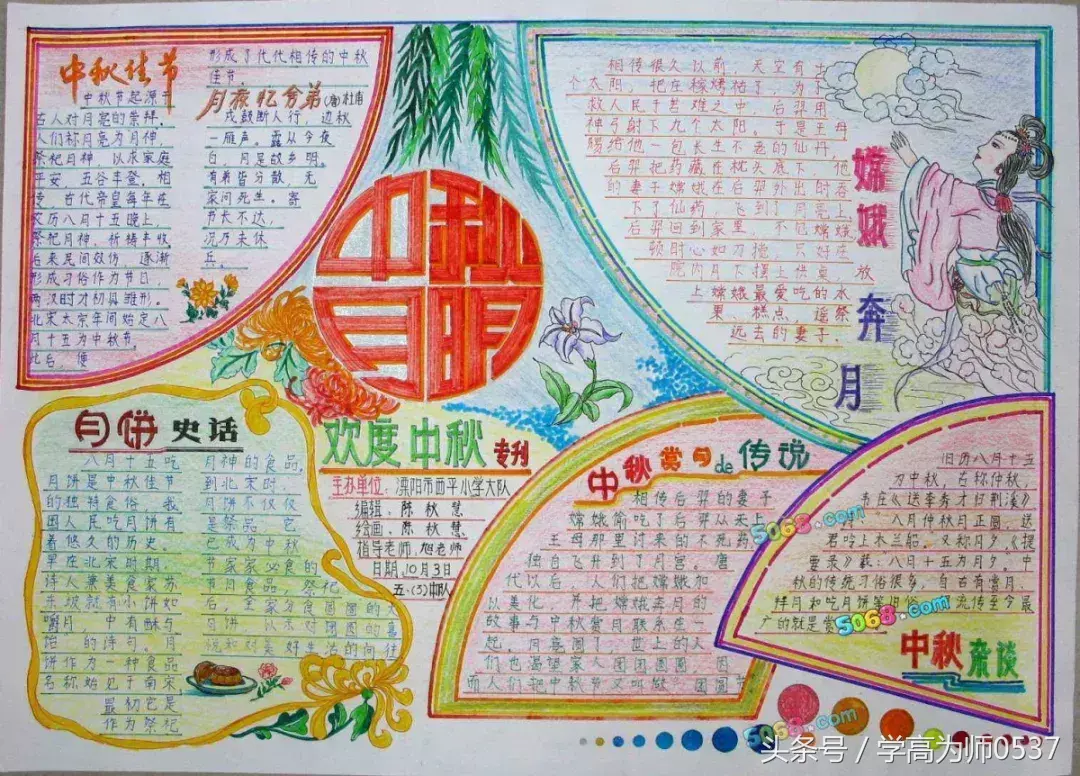 中秋佳节
中秋节起源于
古人对月亮的崇拜,
人们称月亮为月神,
祭祀月神,以求家庭
平安,五谷丰登。相
传,古代帝皇每年在
农历八月十五晚上,
祭祀月神,祈祷丰收,
后来民间效仿,逐渐
形成习俗作为节日,
两汉时才初具雏形。
北宋太宗年间始定八
月十五为中秋节。
此后,便
形成了代代相传的中秋
佳节。
月夜忆舍弟(唐)杜甫
戍鼓断人行,边秋
一雁声。露从今夜
白,月是故乡明。
有弟皆分散,无
家问死生。寄
书长不达,
况乃未休
兵。
中秋
月明
相传很久以前,天空有十
个太阳,把庄稼烤枯了,为了
救人民于苦难之中,后羿用
神弓射下九个太阳。于是王母
赐给他一包长生不老的仙丹,
后羿把药藏在枕头底下,他
的妻子嫦娥在后羿外出时吞
下了仙药,飞到了月亮上。
后羿回到家里,不见嫦娥
顿时心如刀搅,只好在
院内月下摆上供桌,放
上嫦娥最爱吃的水
果、糕点,遥祭
远去的妻子.
嫦娥奔月
月饼史话
八月十五吃
月饼是中秋佳节
的独特食俗。我
国人民吃月饼有
着悠久的历史。
早在北宋时期,
诗人兼美食家苏
东坡就有小饼如
嚼月,中有酥与
饴的诗句。月
饼作为一种食品
名称始见于南宋,
最初它是
作为祭祀
月神的食品,
到北宋时,
月饼不仅仅
是祭品,它
已成为中秋
节家家必食的
节日食品,祭祀
后,全家分食圆圆的大
月饼,以示对团圆的喜
悦和对美好生活的向往
欢度中秋专刊
主办单位:溧阳市西平小学大队
编辑:陈秋慧
绘画:陈秋慧
指导老师:旭老师
日期:10月3日
五·(5)中队
中秋赏月de传说
相传后羿的妻子
嫦娥偷吃了后羿从天上
王母那里讨来的不死药,
独自飞升到了月宫。唐
代以后,人们把嫦娥加
以美化,并把嫦娥奔月的
故事与中秋赏月联系在一
起,月亮圆了,世上的人
们也渴望家人团团圆圆,因
而人们把中秋节又叫做"团圆节
旧历八月十五
为中秋,古称仲秋,
书在《送李秀才归荆溪》
八月仲秋月正圆,送
君吟上木兰船。又称月夕。《提
要录》载:八月十五为月夕。中
秋的传统习俗很多,自古有赏月、
拜月和吃月饼等旧俗,流传至今最
广的就是赏
中秋杂谈
5068.com
5068.com
5068.com
头条号/学高为师0537